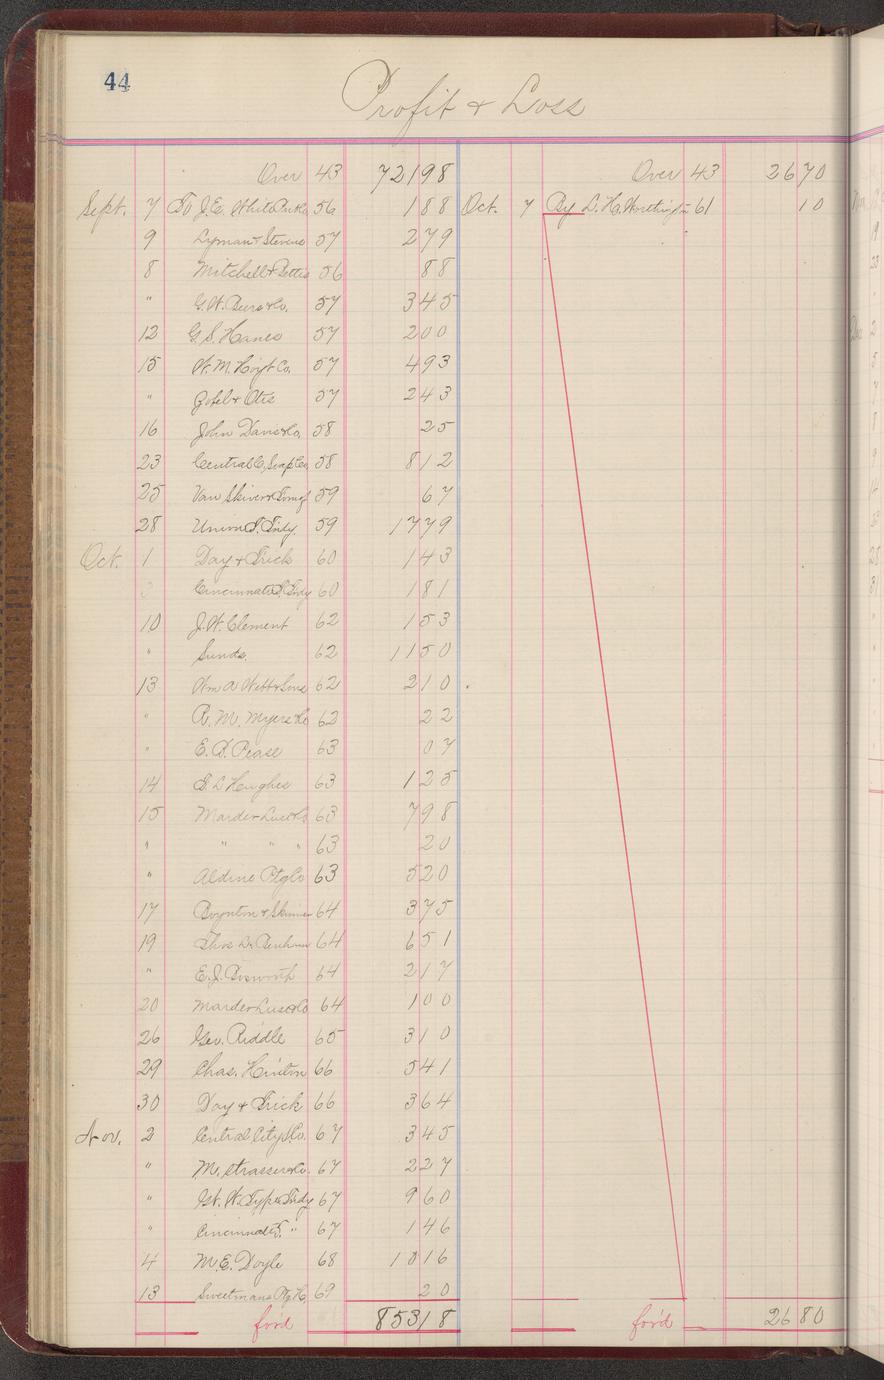 44
Profit & Loss
Over 43 721 98 Over 43 26 70
Sept. 7 To J.E. White 56 1 88 Oct. 7 By L.H. Worthington 61 10
9 Lyman & Stevens 57 2 79
8 Mitchell & Bettis 56 88
" G.W. & Co. 57 3 45
12 G.S. Hanes 57 2 00
15 W.M. Hoyt Co. 57 4 93
" & Otis 57 2 43
16 John Davis & Co. 58 25
23 Central C. Soap Co. 58 8 12
25 Van Skiver & 59 67
28 Union T. Fndy. 59 17 79
Oct. 1 Day & Frick 60 1 43
Cincinnati T. Fndy 60 1 81
10 J.W. Clement 62 1 53
" Sunds. 62 11 50
13 Wm A Webb & Sons 62 2 10
" A.M. Myers & Co 62 22
" E.D. Pease 63 07
14 L Hughes 63 1 25
15 Marder Luse & Co 63 7 98
" " " " 63 20
" Aldine Ptg Co 63 5 20
17 Boynton & Skinner 64 3 75
19 Thos D. 64 6 51
" E.J. Bosworth 64 2 17
20 Marder Luse & Co 64 1 00
26 Geo. Riddle 65 3 10
29 Chas. Hinton 66 5 41
30 Day & Frick 66 3 64
Nov. 2 Central City S. Co. 67 3 45
" M. Strasser & Co. 67 2 27
" Gt. W. Type Fndy 67 9 60
" Cincinnati T. " 67 1 46
4 M.E. Doyle 68 10 16
13 Sweetmans Ptg H. 69 20
for'd 853 18 for'd 26 80